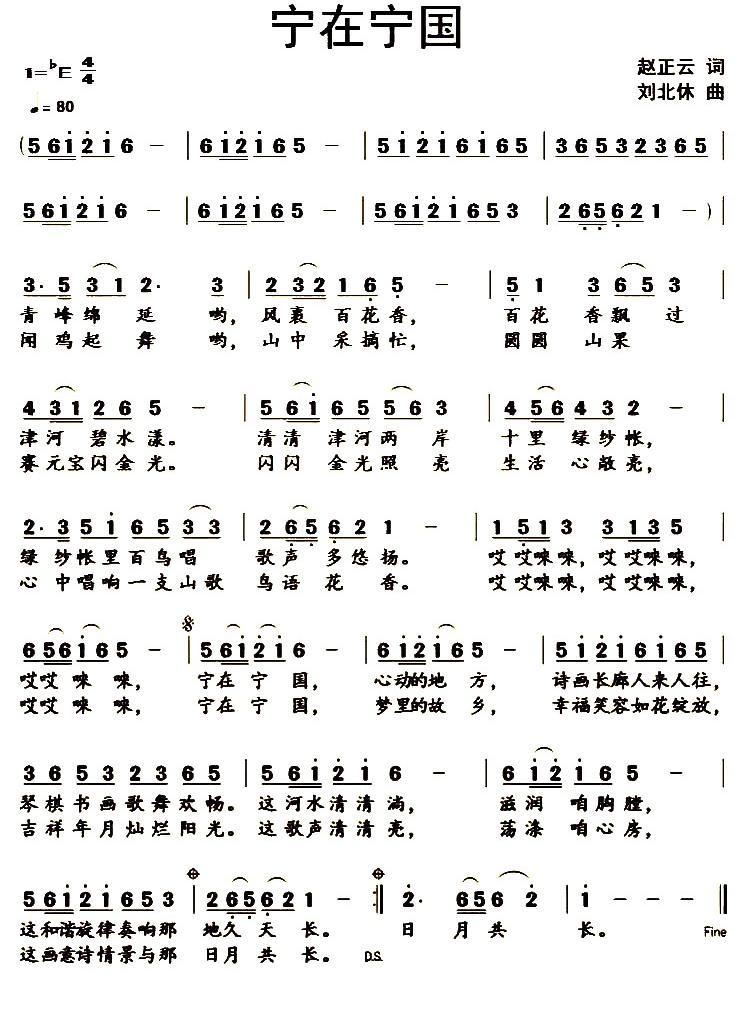 宁在宁国
1=♭E 4/4
赵正云 词
♩= 80
刘北休 曲
(5 6 1 2 1 6 - | 6 1 2 1 6 5 - | 5 1 2 1 6 1 6 5 | 3 6 5 3 2 3 6 5 |
5 6 1 2 1 6 - | 6 1 2 1 6 5 - | 5 6 1 2 1 6 5 3 | 2 6 5 6 2 1 - ) |
3· 5 3 1 2· 3 | 2 3 2 1 6 5 - | 5 1 3 6 5 3 |
青峰绵延 哟，风裹百花香， 百花香飘过
闻鸡起舞 哟，山中采摘忙， 圆圆山果
4 3 1 2 6 5 - | 5 6 1 6 5 5 6 3 | 4 5 6 4 3 2 - |
津河碧水漾。 清清津河两岸 十里绿纱帐，
赛元宝闪金光。 闪闪金光照亮 生活心敞亮，
2· 3 5 1 6 5 3 3 | 2 6 5 6 2 1 - | 1 5 1 3 3 1 3 5 |
绿纱帐里百鸟唱 歌声多悠扬。 哎哎唻唻，哎哎唻唻，
心中唱响一支山歌 鸟语花香。 哎哎唻唻，哎哎唻唻，
6 5 6 1 6 5 - | 5 6 1 2 1 6 - | 6 1 2 1 6 5 - | 5 1 2 1 6 1 6 5 |
哎哎唻唻， 宁在宁国， 心动的地方， 诗画长廊人来人往，
哎哎唻唻， 宁在宁国， 梦里的故乡， 幸福笑容如花绽放，
3 6 5 3 2 3 6 5 | 5 6 1 2 1 6 - | 6 1 2 1 6 5 - |
琴棋书画歌舞欢畅。这河水清清淌， 滋润咱胸膛，
吉祥年月灿烂阳光。这歌声清清亮， 荡涤咱心房，
5 6 1 2 1 6 5 3 | 2 6 5 6 2 1 - :| 2· 6 5 6 2 | 1 - - - |
这和谐旋律奏响那 地久天长。 日月共长。 Fine
这画意诗情景与那 日月共长。 D.S.